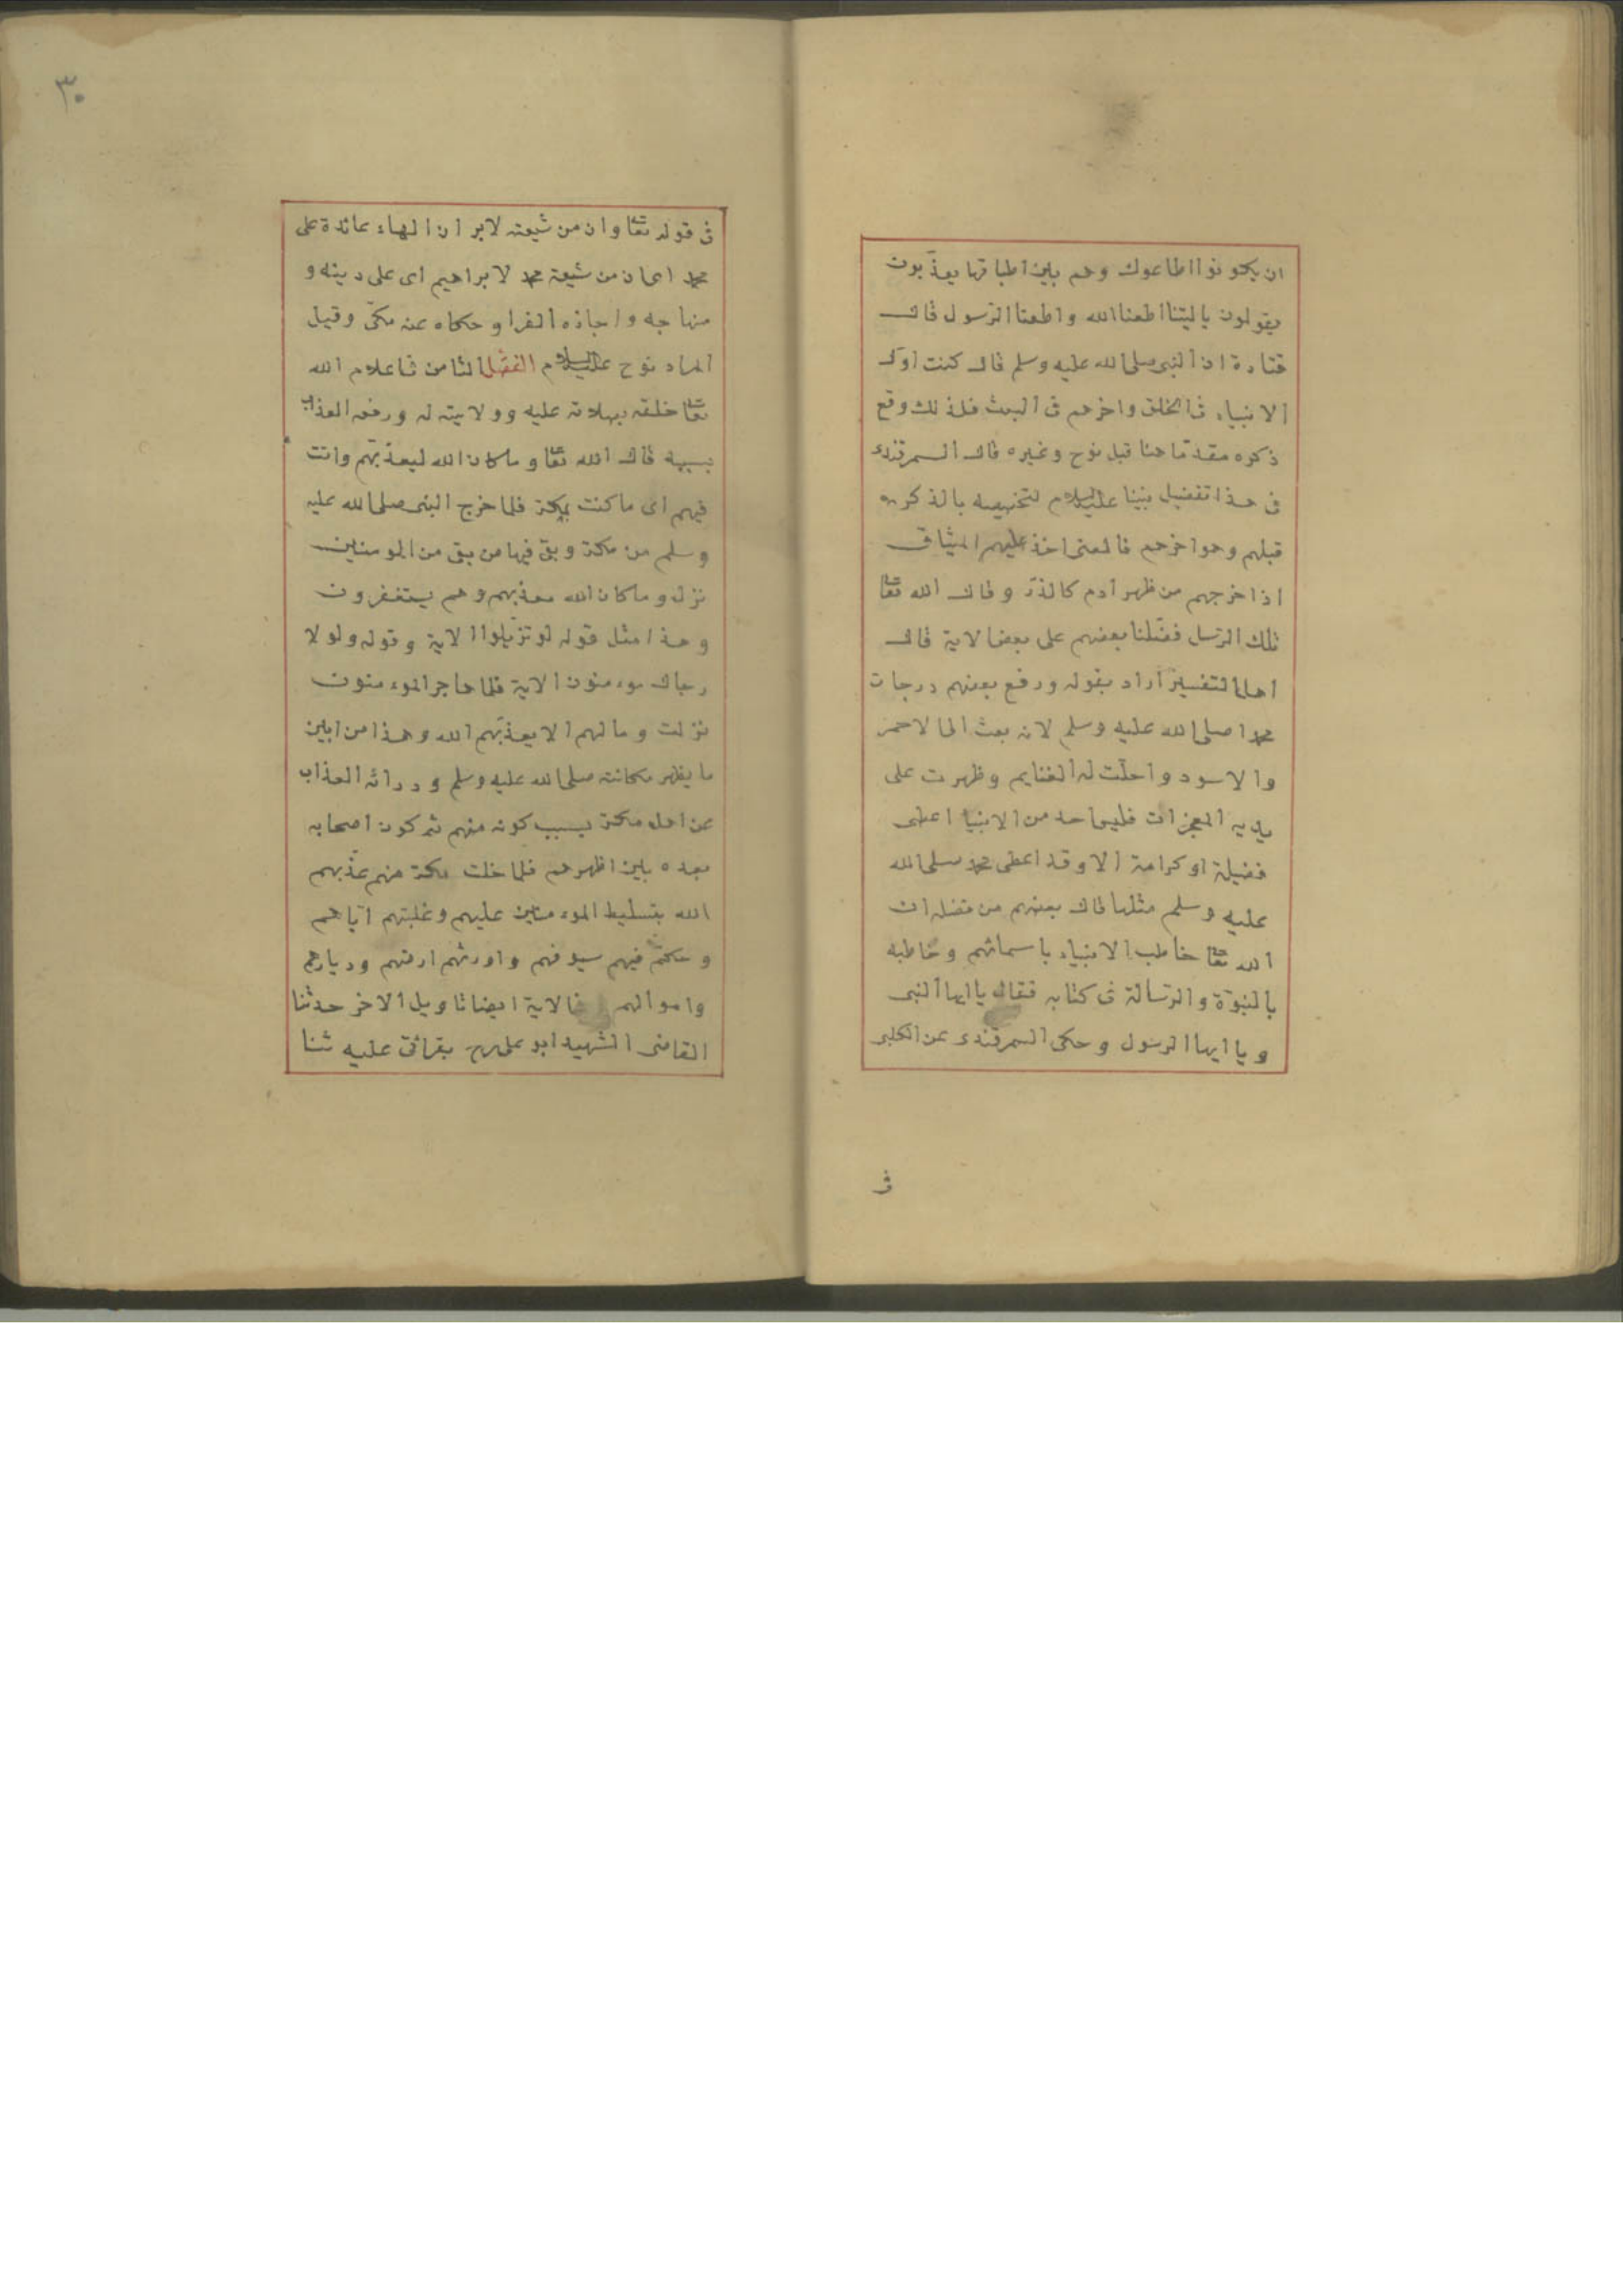 ان يكونوا اطاعوك وهم بين اطباقها يعذّبون
يقولون ياليتنا اطعنا الله واطعنا الرّسول قال
قتادة ان النبى صلى الله عليه وسلم قال كنت اوّل
الانبياء فى الخلق واخرهم فى البعث فلذلك وقع
ذكره مقدّما هنا قبل نوح وغيره قال السمرقندى
فى هذا تفضيل نبينا عليه السلام لتخصيصه بالذكر
قبلهم وهو اخرهم فالمعنى اخذ عليهم الميثاق
اذا خرجهم من ظهر ادم كالذرّ وقال الله تعا
تلك الرّسل فضّلنا بعضهم على بعض الاية قال
اهل التفسير اراد بقوله ورفع بعضهم درجات
محمدا صلى الله عليه وسلم لانه بعث الى الاحمر
والاسود واحلّت له الغنايم وظهرت على
يديه المعجزات فليس احد من الانبيا اعطى
فضيلة او كرامة الا وقد اعطى محمد صلى الله
عليه وسلم مثلها قال بعضهم من فضله ان
الله تعا خاطب الانبياء باسمائهم وخاطبه
بالنبوّة والرّسالة فى كتابه فقال ياايها النبى
وياايها الرسول وحكى السمرقندى عن الكلبى
فى
٣٠
فى قوله تعا وان من شيعته لابر ان الهاء عائدة على
محمد اى ان من شيعة محمد لابراهيم اى على دينه و
منهاجه واجازه الفرا وحكاه عنه مكىّ وقيل
المراد نوح عليه السلام الفصل الثامن فى اعلام الله
تعا خلقه بصلاته عليه وولايته له ورفعه العذاب
بسببه قال الله تعا وما كان الله ليعذّبهم وانت
فيهم اى ما كنت بمكة فلما خرج النبى صلى الله عليه
وسلم من مكة وبقى فيها من بقى من المومنين
نزل وما كان الله معذبهم وهم يستغفرون
وهذا مثل قوله لو تزيّلوا الاية وقوله ولولا
رجال موءمنون الاية فلما هاجر الموءمنون
نزلت وما لهم الا يعذّبهم الله وهذا من ابين
ما يظهر مكانته صلى الله عليه وسلم ودرائه العذاب
عن اهل مكة بسبب كونه منهم ثم كون اصحابه
بعده بين اظهرهم فلما خلت مكة منهم عذّبهم
الله بتسليط الموءمنين عليهم وغلبتهم ايّاهم
وحكّم فيهم سيوفهم واورثهم ارضهم وديارهم
واموالهم فى الاية ايضا تاويل الاخر حدثنا
القاضى الشهيد ابو على رح بقرائتى عليه ثنا